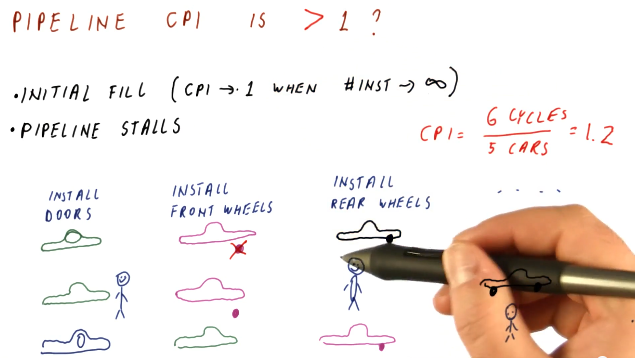 PIPELINE CPI IS > 1 ?
• INITIAL FILL (CPI → 1 WHEN #INST → ∞)
• PIPELINE STALLS
CPI = 6 CYCLES / 5 CARS = 1.2
INSTALL DOORS
INSTALL FRONT WHEELS
INSTALL REAR WHEELS
. . . . .